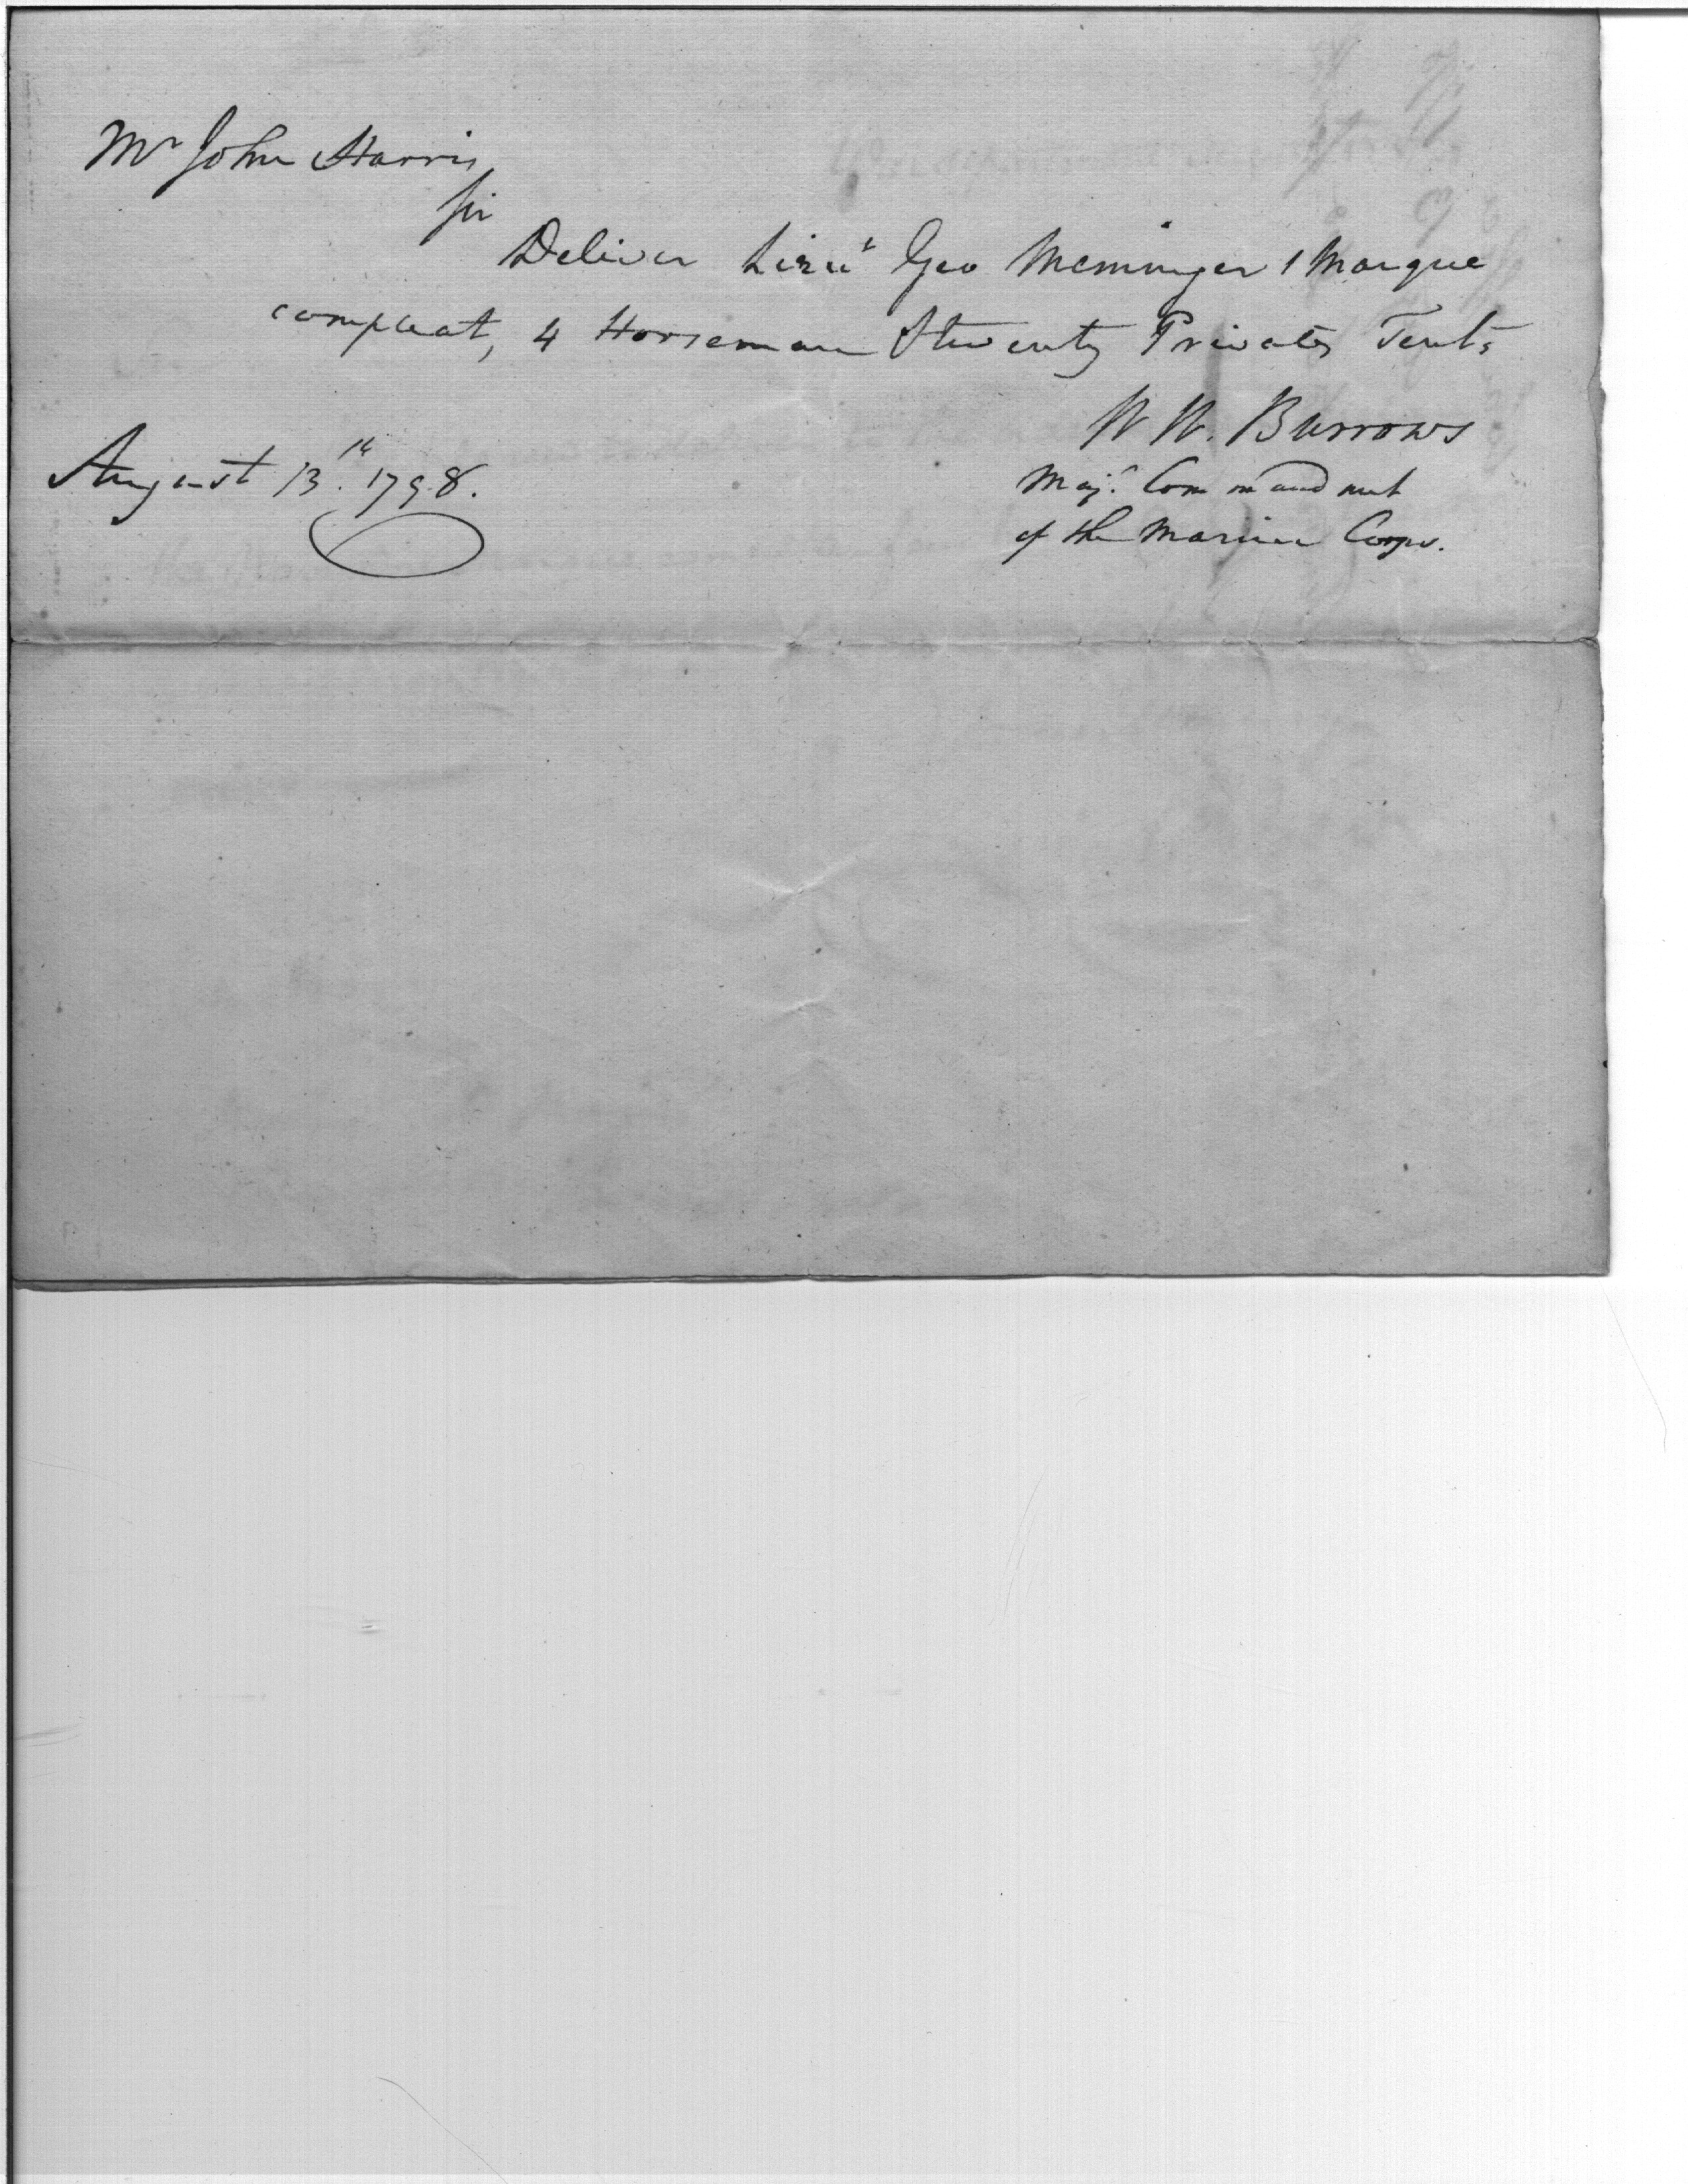 Mr John Harris
Sir
Deliver Lieut Geo Memminger 1 Marque
compleat, 4 Horseman & twenty Privates Tents
W W. Burrows
August 13th. 1798.
Majr. Commandant
of the Marine Corps.